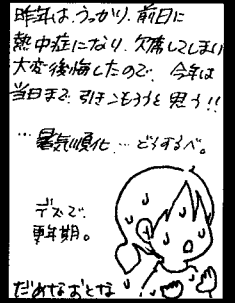 昨年は、うっかり、前日に
熱中症になり、欠席してしまい
大変後悔したので、今年は
当日まで、引きこもろうと思う!!
…暑気順化…どうするべ。
デスで、
更年期。
だめなおとな